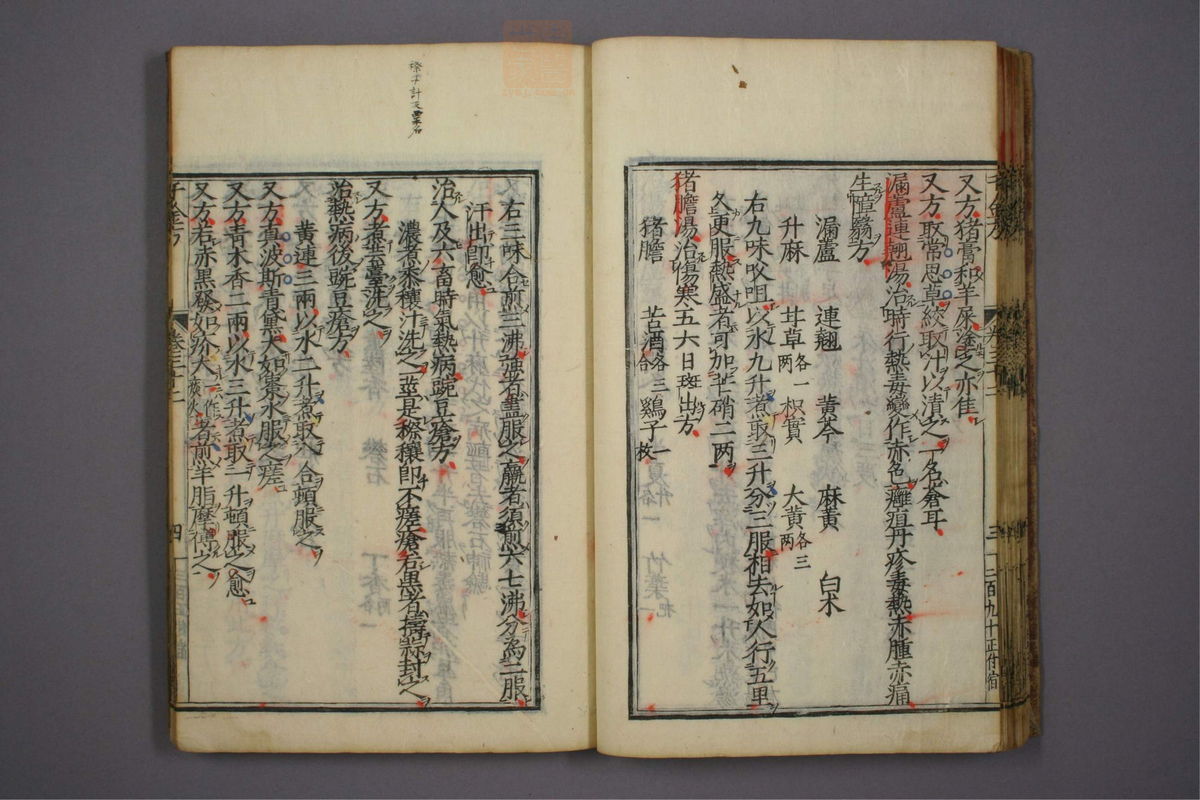 又方猪膏和羊屎塗之亦佳
又方取常思草絞取汁以漬之一名倉耳
漏蘆連翹湯治時行熱毒變作赤色癰疽丹疹毒熱赤腫赤痛
生瞕翳方
漏蘆 連翹 黃芩 麻黃 白朮
升麻 甘草各一兩 枳實 大黃各三兩
右九味㕮咀以水九升煮取三升分三服相去如人行五里
久更服熱盛者可加芒硝二兩
猪膽湯治傷寒五六日斑出方
猪膽 苦酒各三合 鷄子一枚
右三味合煎三沸強者盡服之羸者須煎六七沸分爲二服
汗出即愈
治人及六畜時氣熱病豌豆瘡方
濃煮黍穰汁洗之 並是穄穰即不瘥瘡若黑者擣蒜封之
又方煮芸薹洗之
治熱病後豌豆瘡方
黃連三兩以水二升煮取八合頓服之
又方真波斯青黛大如棗水服之瘥
又方青木香二兩以水三升煮取一升頓服之愈
又方若赤黑發如疥大者煎羊脂摩傅之
千金方 卷三十二 四